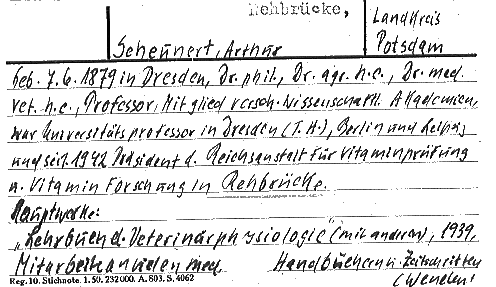 Rehbrücke,
Landkreis
Potsdam
Scheunert, Arthur
geb. 7.6.1879 in Dresden, Dr. phil., Dr. agr. h.c., Dr. med.
vet. h.c., Professor, Mitglied versch. Wissenschaftl. Akademien,
war Universitätsprofessor in Dresden (T.H.), Berlin und Leipzig
und seit 1942 Präsident d. Reichsanstalt für Vitaminprüfung
u. Vitamin Forschung in Rehbrücke.
Hauptwerke:
"Lehrbuch d. Veterinärphysiologie" (mit anderen), 1939,
Mitarbeit an vielen med. Handbüchern u. Zeitschriften
(Wenden!
Reg. 10. Stichnote. 1. 50. 232000. A. 803. S. 4062